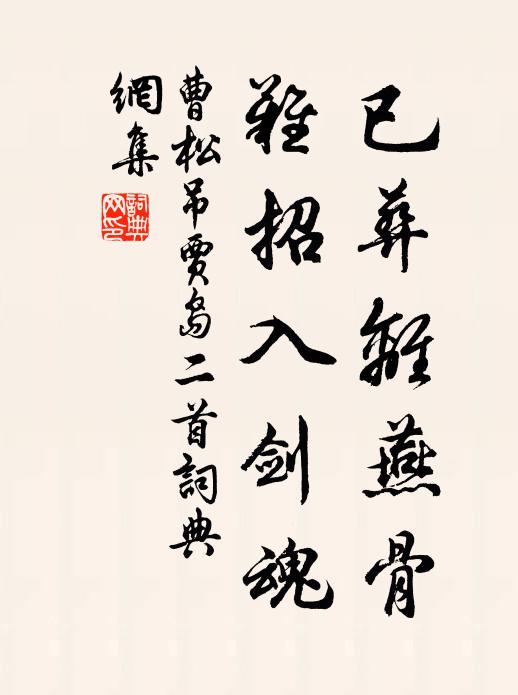 已葬離燕骨
難招入劍魂
曹松吊賈島二首詞典
網集
詞典
网印